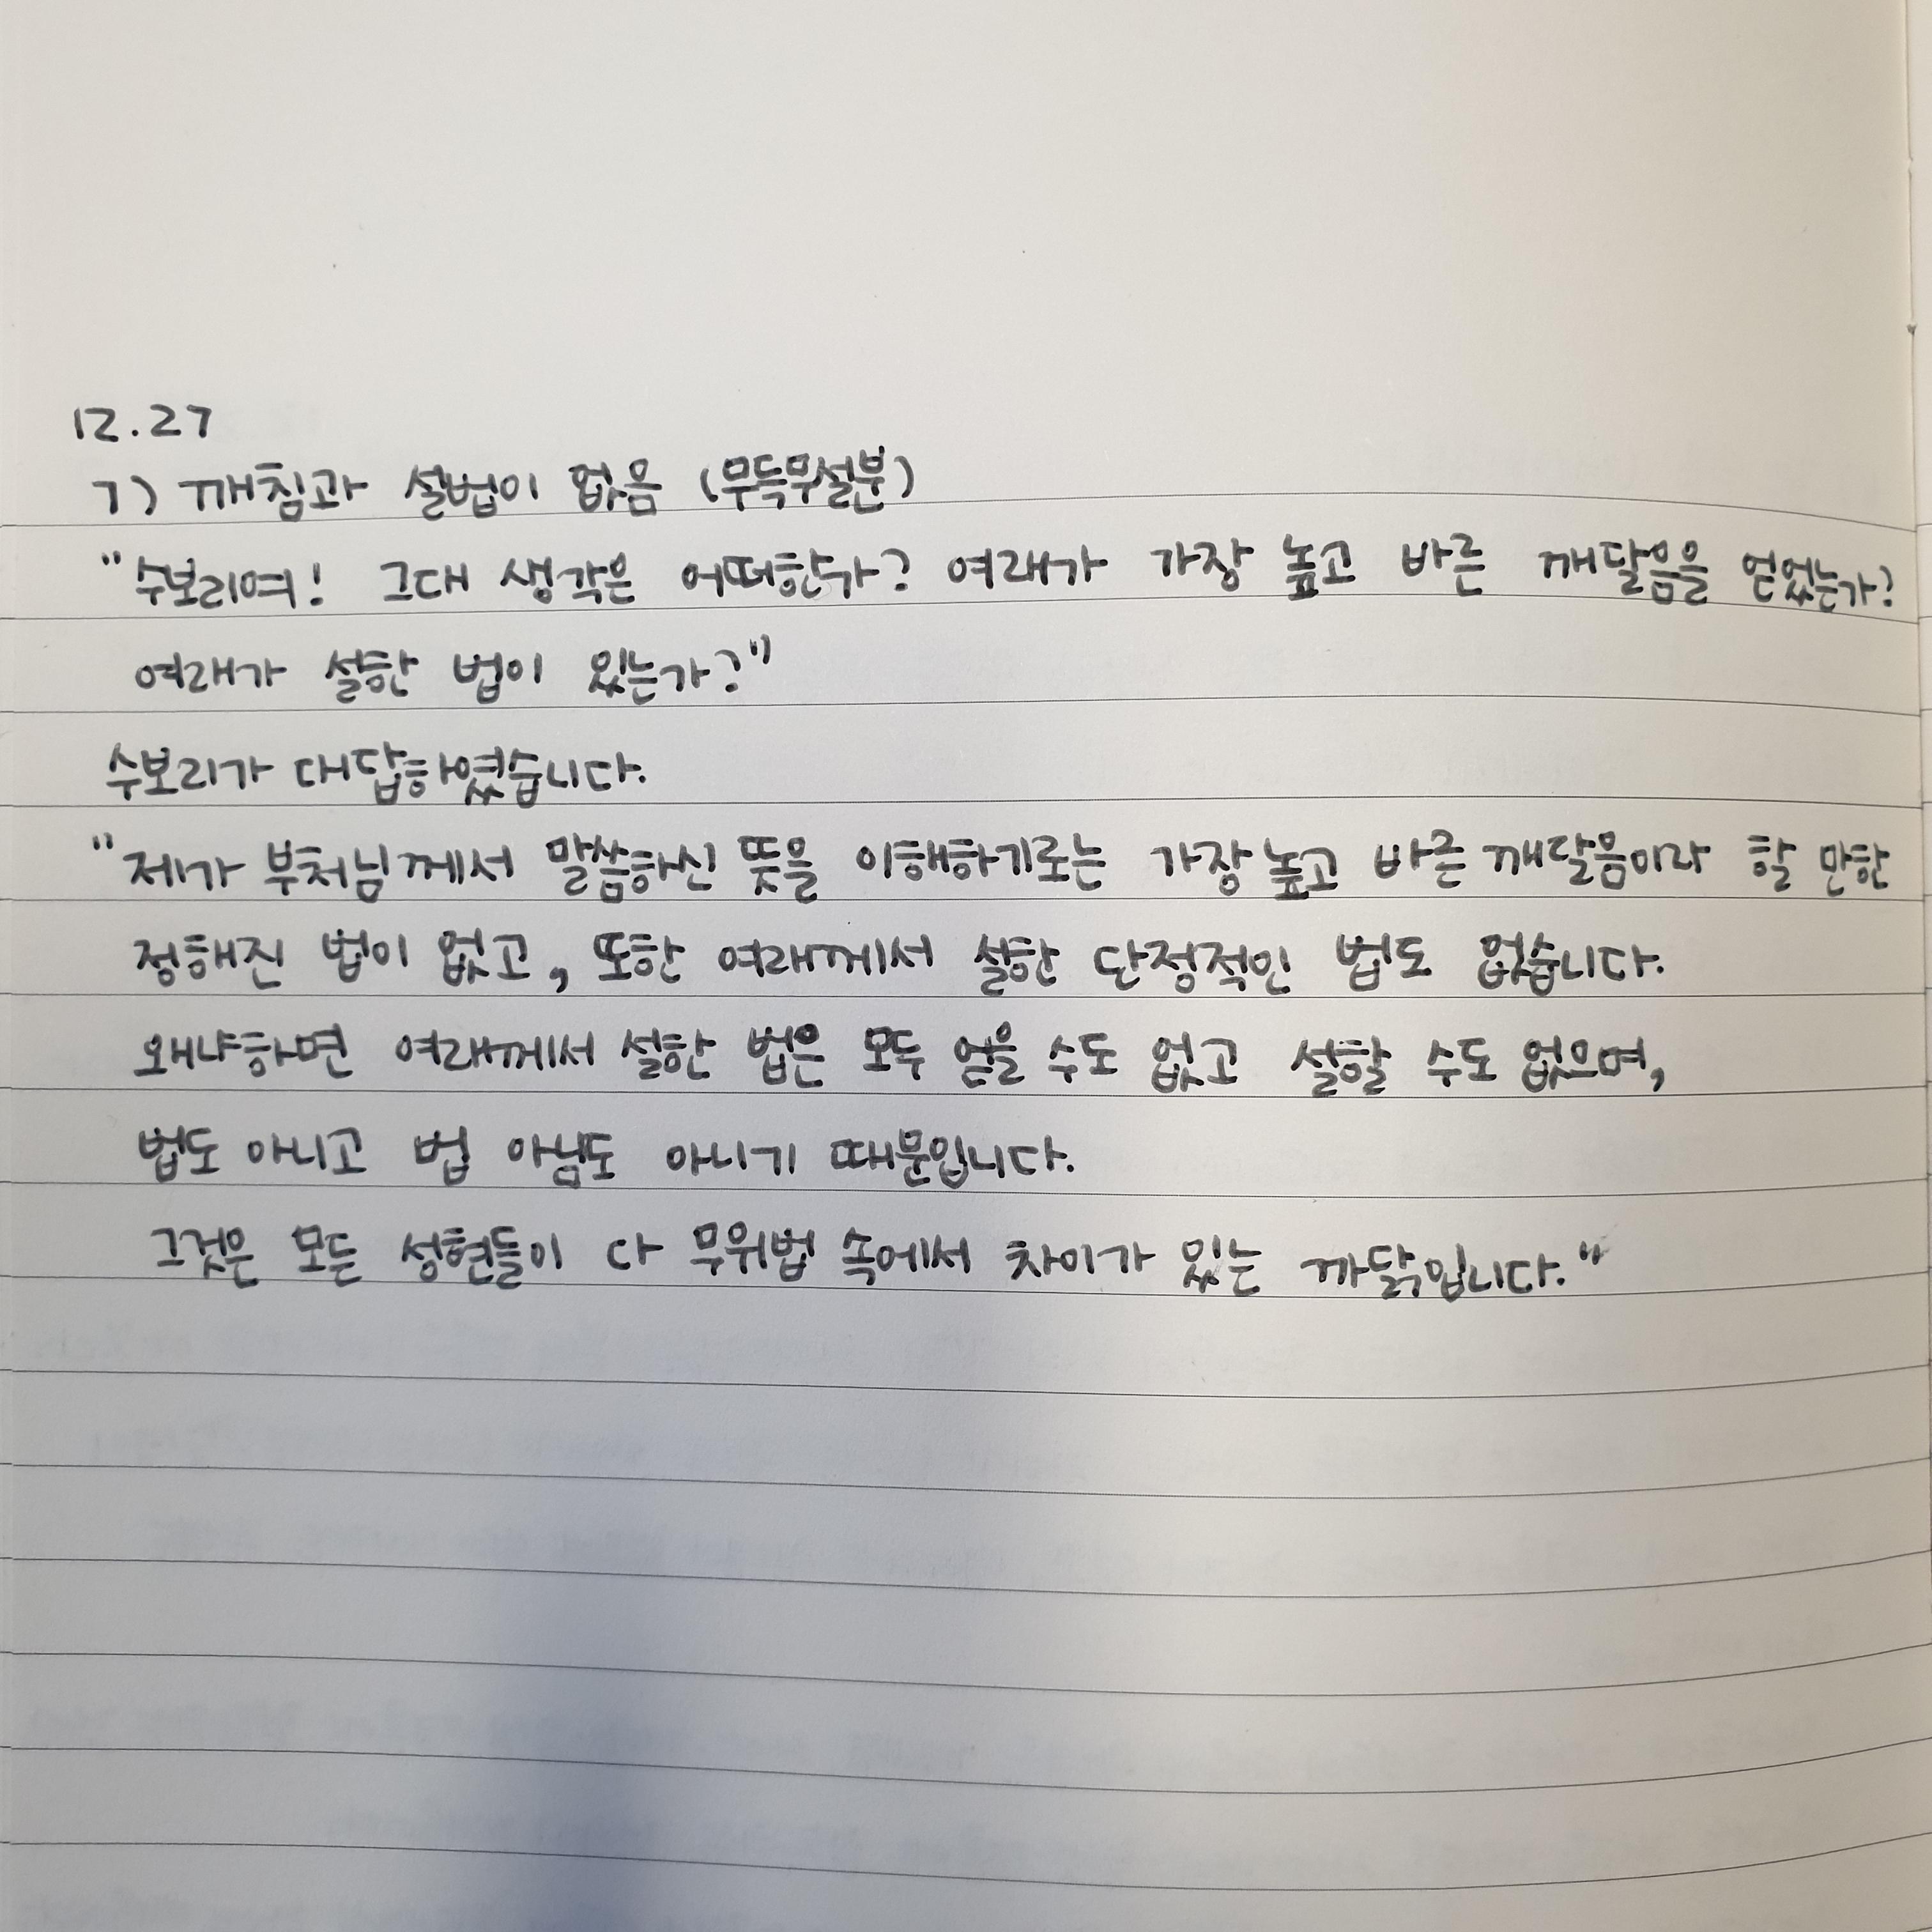 12.27
7) 깨침과 설법이 없음 (무득무설분)
"수보리여! 그대 생각은 어떠한가? 여래가 가장 높고 바른 깨달음을 얻었는가?
여래가 설한 법이 있는가?"
수보리가 대답하였습니다.
"제가 부처님께서 말씀하신 뜻을 이해하기로는 가장 높고 바른 깨달음이라 할 만한
정해진 법이 없고, 또한 여래께서 설한 단정적인 법도 없습니다.
왜냐하면 여래께서 설한 법은 모두 얻을 수도 없고 설할 수도 없으며,
법도 아니고 법 아님도 아니기 때문입니다.
그것은 모든 성현들이 다 무위법 속에서 차이가 있는 까닭입니다."